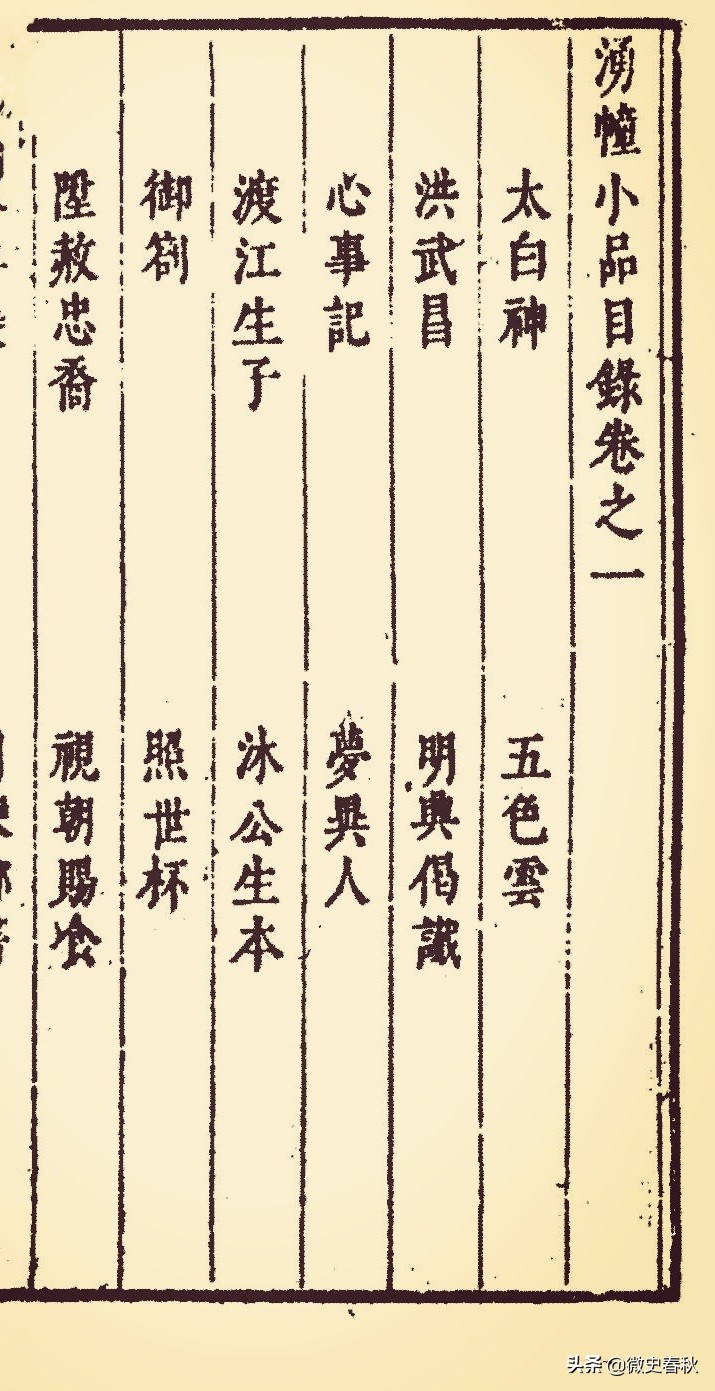 湧幢小品目錄卷之一
太白神　五色雲
洪武昌　明興偈讖
心事記　夢異人
渡江生子　沐公生本
御劄　照世杯
陞赦忠裔　視朝賜飡
头条 @微史春秋